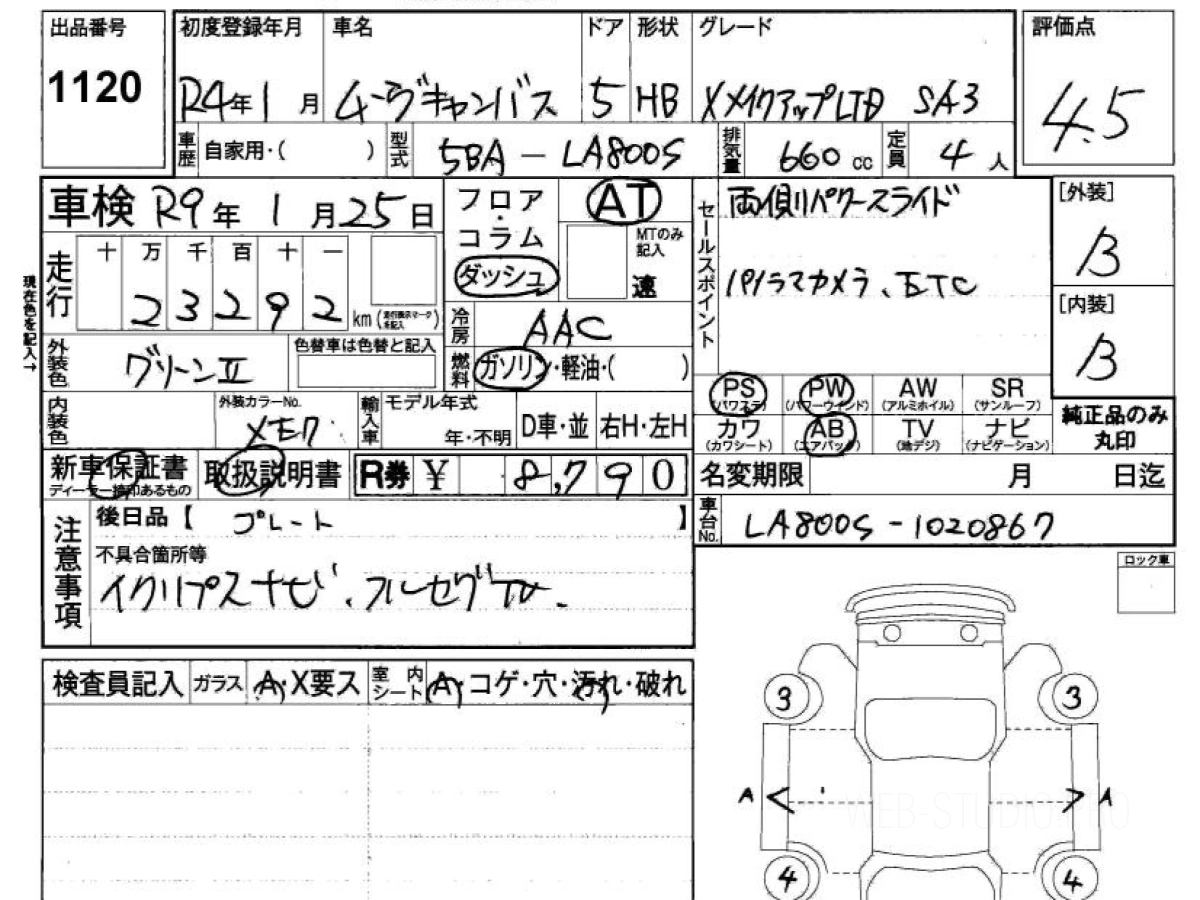 出品番号 初度登録年月 車名 ドア 形状 グレード 評価点
1120 R4年1月 ムーヴキャンバス 5 HB XメイクアップLTD SA3 4.5
車歴 自家用・( ) 型式 5BA-LA800S 排気量 660cc 定員 4人
車検 R9年1月25日 フロア・コラム ダッシュ AT セールスポイント 両側パワースライド [外装]
MTのみ記入 速 B
走行 十 万 千 百 十 一
23292 km (走行表示マークを記入) パノラマカメラ、ETC [内装]
現在色を記入→ 冷房 AAC B
外装色 グリーンII 色替車は色替と記入 燃料 ガソリン・軽油・( )
PS (パワステ) PW (パワーウインド) AW (アルミホイル) SR (サンルーフ)
内装色 外装カラーNo. XモO 輸入車 モデル年式 年・不明 D車・並 右H・左H
カワ (カワシート) AB (エアバック) TV (地デジ) ナビ (ナビゲーション) 純正品のみ丸印
新車保証書 ディーラー捺印あるもの 取扱説明書 R券 ¥ 8,790 名変期限 月 日迄
注意事項 後日品【 プレート 】 車台No. LA800S-1020867
不具合箇所等
イクリプスナビ、フルセグTV.
ロック車
検査員記入 ガラス A・X要ス 室内シート A・コゲ・穴・汚れ・破れ
3 3
A A
WEB-STUDIO PRO
4 4